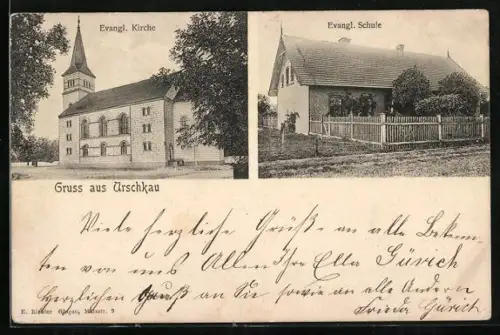 Evangl. Kirche
Evangl. Schule
Gruss aus Urschkau
Viele herzliche Grüße an alle Bekann-
ten von uns Allen Ihre Ella Gürich
Herzlichen Gruß an Sie sowie an alle Anderen
Frieda Gürich
Glogau,